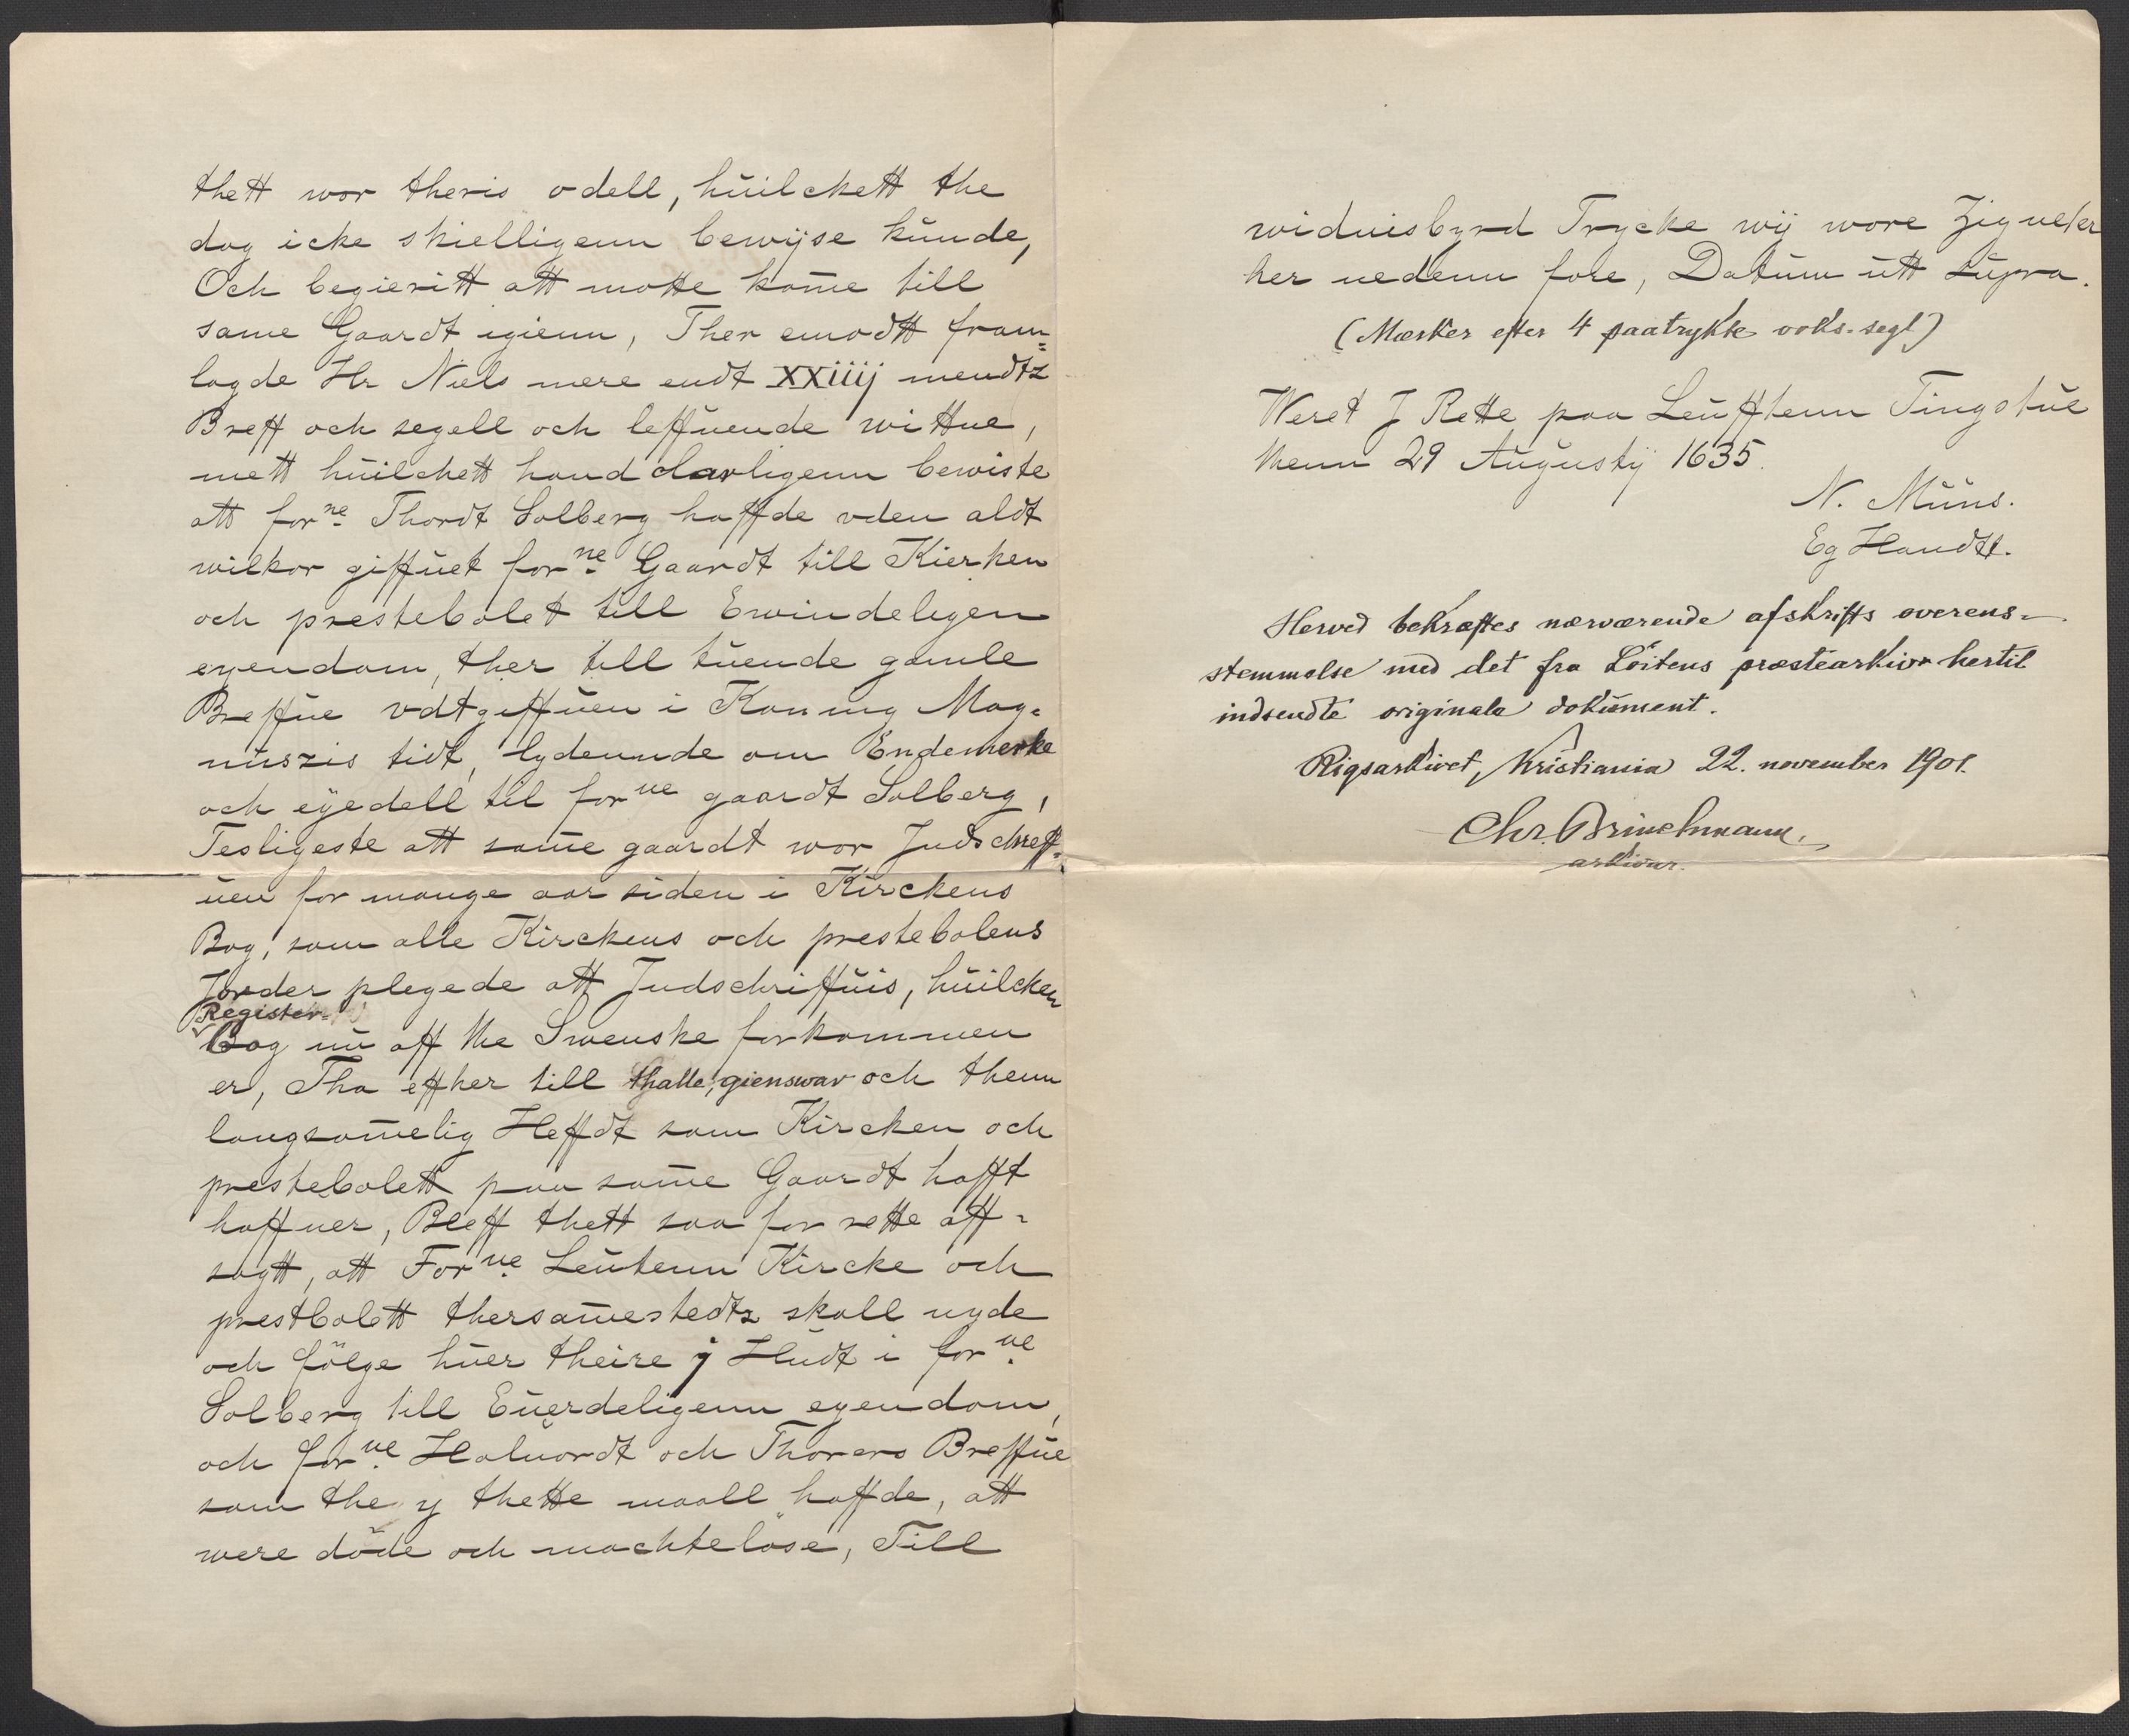 thett wor theris odell, huilckett the
dog icke skielligenn bewijse kunde,
Och begieritt att motte kom̄e till
same Gaardt igienn, Ther emodtt fram=
lagde Hr Niels mere endt XXiiij mendtz
Breff och segell och leffuende wittne,
mett huilckett hand clarligenn bewiste
att forne Thordt Solberg haffde vden aldt
wilkor giffuet forne Gaardt till Kierken
och prestebolet till Ewindeligen
eyendom, ther till tuende gamle
Breffue vdtgiffuen i Konung Mag=
nuszis tidt, lydennde om Endemerke
och eyedell til forne gaardt Solberg,
Tesligeste att sam̄e gaardt wor Jndschreff=
uen for mange aar siden i Kirckens
Bog, som alle Kirckens och prestebolens
Jorder plegede att Jndschriffuis, huilcken
Register=
Bog nu aff the Swenske forkommen
er, Tha effther till thalle, gienswar och thenn
langsom̄elig Heffdt som Kircken och
prestebolett paa sam̄e Gaardt hafft
haffuer, Bleff thett saa for rette aff=
sagtt, att Forne Leutenn Kircke och
prestbolett thersam̄estedtz skall nyde
och fölge huer theire j Hudt i forne
Solberg till Euerdeligenn eyendom,
och forne Haluordt och Thorers Breffue
som the y thette maall haffde, att
were döde och machtelöse, Till
widnisbyrd Trycke wij wore Zigneter
her nedenn fore, Datum utt supra.
(Mærker efter 4 paatrykte voks-segl)
Weret J Rette paa Leufftenn Tingstue
thenn 29 Augustij 1635.
N. Muns.
Eg Handtt.
Herved bekræftes nærværende afskrifts overens=
stemmelse med det fra Löitens præstearkiv hertil
indsendte originale dokument.
Rigsarkivet, Kristiania 22. november 1901.
Chr. Brinchmann.
arkivar.